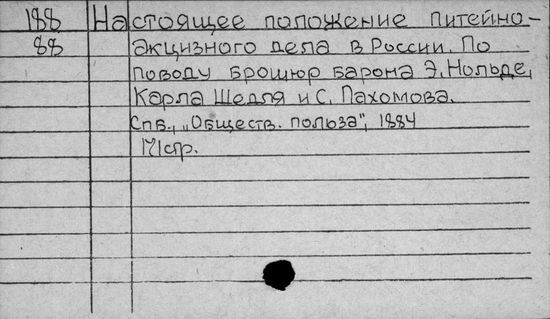 188 Настоящее положение питейно-
88 акцизного дела в России. По
поводу брошюр барона Э. Нольде,
Карла Шедля и С. Пахомова.
Спб., „Обществ. польза", 1884
171 стр.